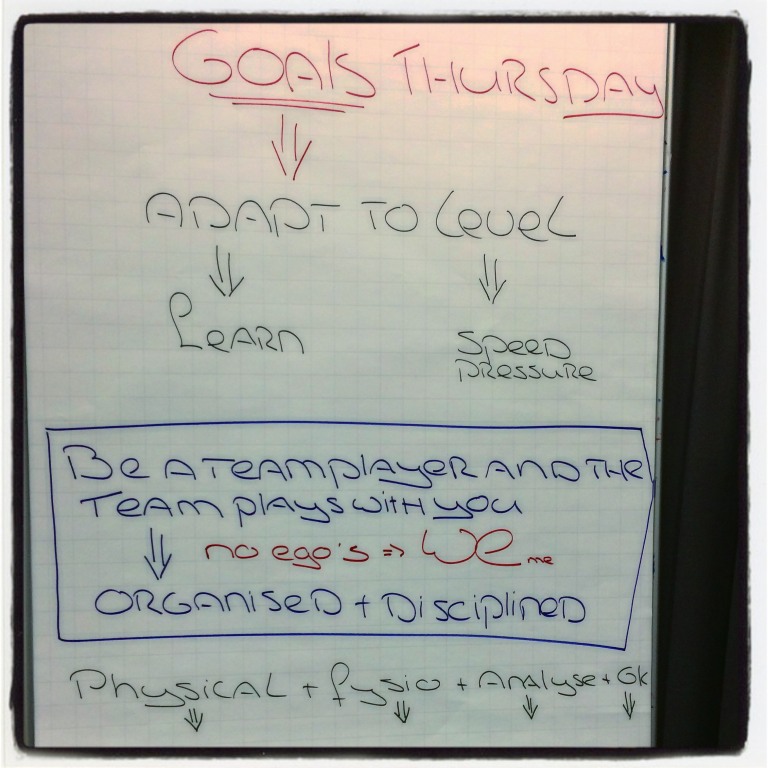 GOALS THURSDAY
⇓
ADAPT TO LEVEL
⇓ ⇓
LEARN SPEED
PRESSURE
BE A TEAMPLAYER AND THE
TEAM PLAYS WITH YOU
⇓ no ego's => WE me
ORGANISED + DISCIPLINED
PHYSICAL + fysio + ANALYSE + GK
⇓ ⇓ ⇓ ⇓